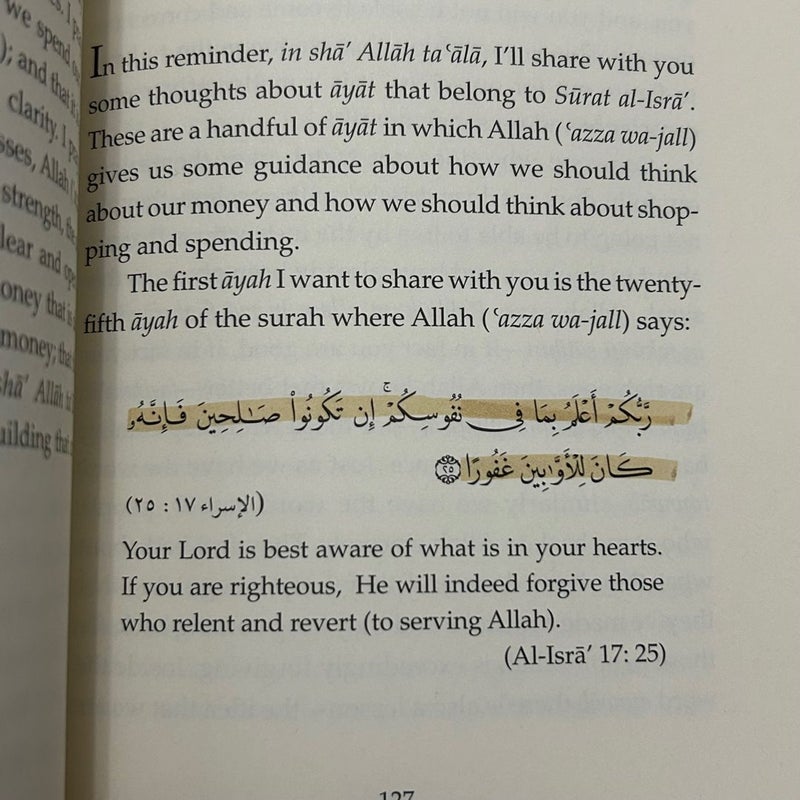 we spend
); and that
clarity. I
sses, Allah
strength, the
lear and
oney that is
money; that
shā’ Allāh
uilding that
In this reminder, in shā’ Allāh ta‘ālā, I’ll share with you
some thoughts about āyāt that belong to Sūrat al-Isrā’.
These are a handful of āyāt in which Allah (‘azza wa-jall)
gives us some guidance about how we should think
about our money and how we should think about shop-
ping and spending.
The first āyah I want to share with you is the twenty-
fifth āyah of the surah where Allah (‘azza wa-jall) says:
رَّبُّكُمْ أَعْلَمُ بِمَا فِي نُفُوسِكُمْ ۚ إِن تَكُونُوا۟ صَـٰلِحِينَ فَإِنَّهُۥ
كَانَ لِلْأَوَّٰبِينَ غَفُورًا ٢٥
(الإسراء ١٧ : ٢٥)
Your Lord is best aware of what is in your hearts.
If you are righteous, He will indeed forgive those
who relent and revert (to serving Allah).
(Al-Isrā’ 17: 25)
127